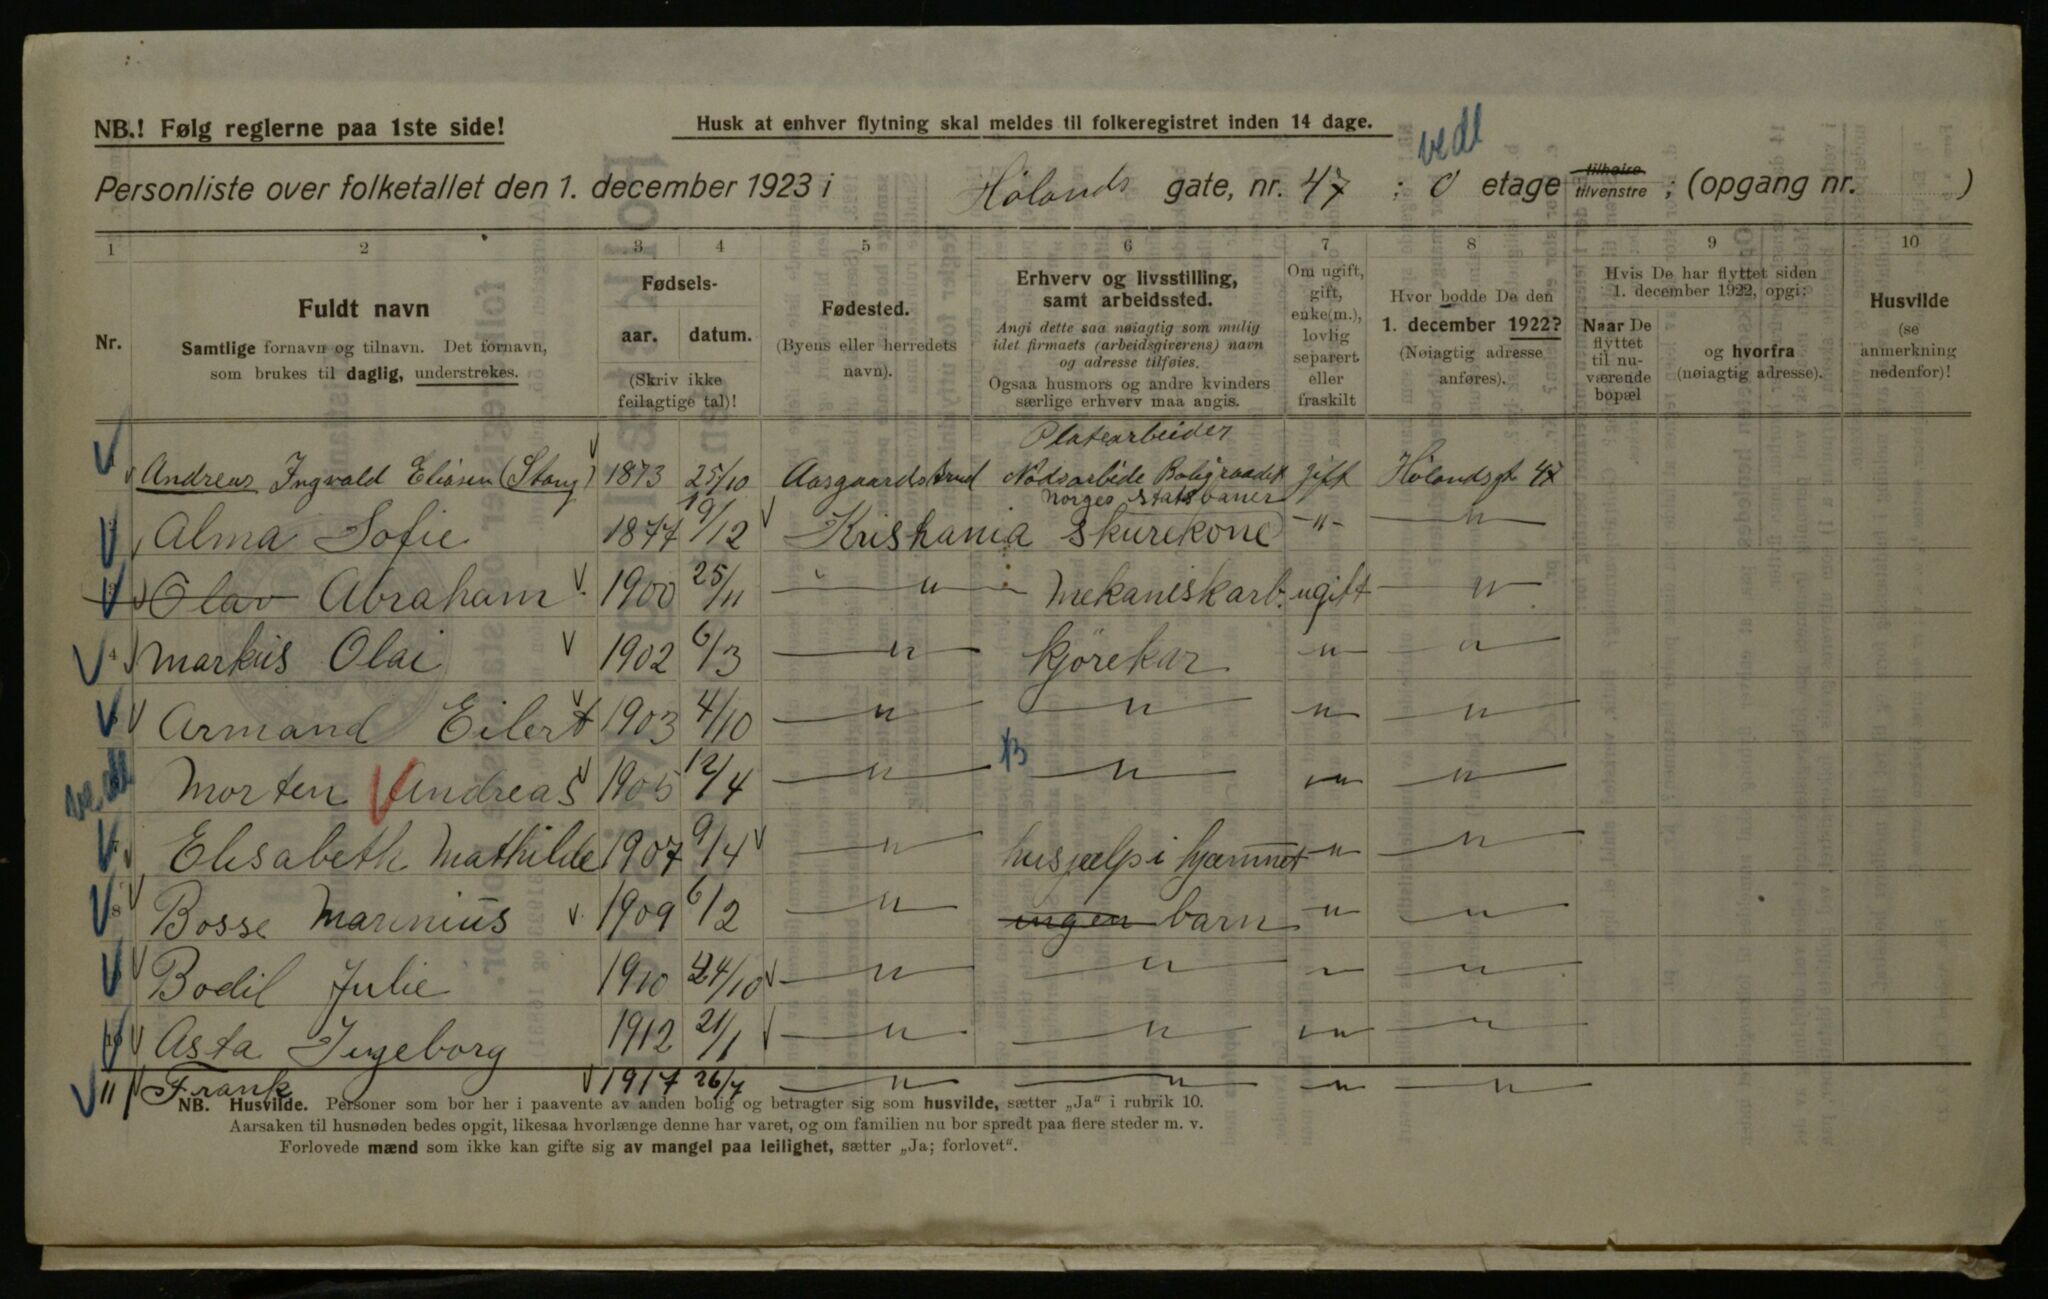 NB.! Følg reglerne paa 1ste side!
Husk at enhver flytning skal meldes til folkeregistret inden 14 dage.
vedl
Personliste over folketallet den 1. december 1923 i Hölands gate, nr. 47 : 0 etage tilhøire tilvenstre ; (opgang nr. )
1 2 3 4 5 6 7 8 9 10
Nr.
Fuldt navn
Samtlige fornavn og tilnavn. Det fornavn,
som brukes til daglig, understrekes.
Fødsels-
aar. datum.
(Skriv ikke
feilagtige tal)!
Fødested.
(Byens eller herredets
navn).
Erhverv og livsstilling,
samt arbeidssted.
Angi dette saa nøiagtig som mulig
idet firmaets (arbeidsgiverens) navn
og adresse tilføies.
Ogsaa husmors og andre kvinders
særlige erhverv maa angis.
Om ugift,
gift,
enke(m.),
lovlig
separert
eller
fraskilt
Hvor bodde De den
1. december 1922?
(Nøiagtig adresse
anføres).
Hvis De har flyttet siden
1. december 1922, opgi:
Naar De
flyttet
til nu-
værende
bopæl
og hvorfra
(nøiagtig adresse).
Husvilde
(se
anmerkning
nedenfor)!
Platearbeider
Andreas Ingvald Eliasen (Stang) 1873 25/10 Aasgaardstrand Nödsarbeide Boligraadet gift Hölandsgt 47
Norges Statsbaner
Alma Sofie 1877 19/12 Kristiania Skurekone " "
Olav Abraham 1900 25/11 " Mekaniskarb. ugift "
4 Markus Olai 1902 6/3 " Kjörekar " "
Armand Eilert 1903 4/10 " " " "
vedl Morten Andreas 1905 12/4 " B " " "
Elisabeth Mathilde 1907 9/4 " husjælp i hjæmmet " "
8 Bosse Marinius 1909 6/2 " ingen barn " "
Bodil Julie 1910 24/10 " " " "
Asta Ingeborg 1912 21/1 " " " "
11 Frank 1917 26/7 " " " "
NB. Husvilde. Personer som bor her i paavente av anden bolig og betragter sig som husvilde, sætter „Ja“ i rubrik 10.
Aarsaken til husnøden bedes opgit, likesaa hvorlænge denne har varet, og om familien nu bor spredt paa flere steder m. v.
Forlovede mænd som ikke kan gifte sig av mangel paa leilighet, sætter „Ja; forlovet“.